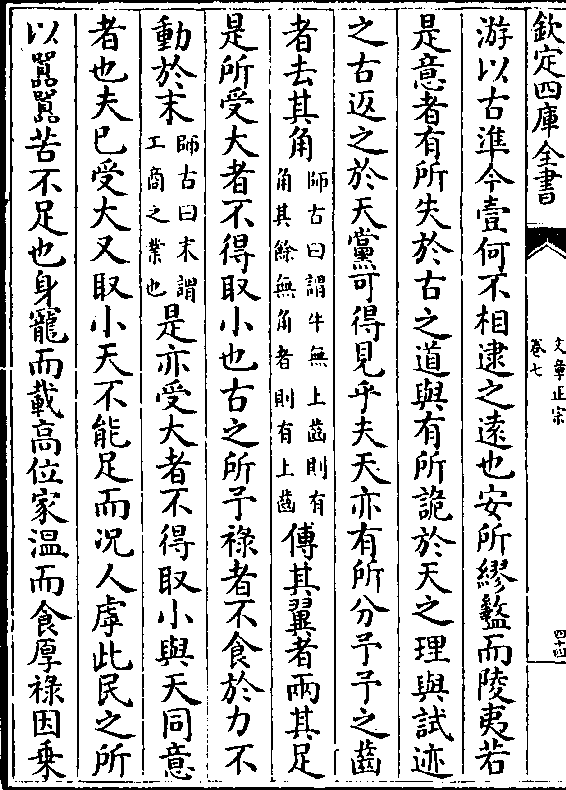 欽定四庫全書
文章正宗
卷七
四十四
游以古準今壹何不相逮之遠也安所繆盭而陵夷若
是意者有所失於古之道與有所詭於天之理與試迹
之古返之於天黨可得見乎夫天亦有所分予予之齒
者去其角師古曰謂牛無上齒則有角其餘無角者則有上齒傅其翼者兩其足
是所受大者不得取小也古之所予祿者不食於力不
動於末師古曰末謂工商之業也是亦受大者不得取小與天同意
者也夫已受大又取小天不能足而况人虖此民之所
以囂囂苦不足也身寵而載高位家温而食厚祿因乗